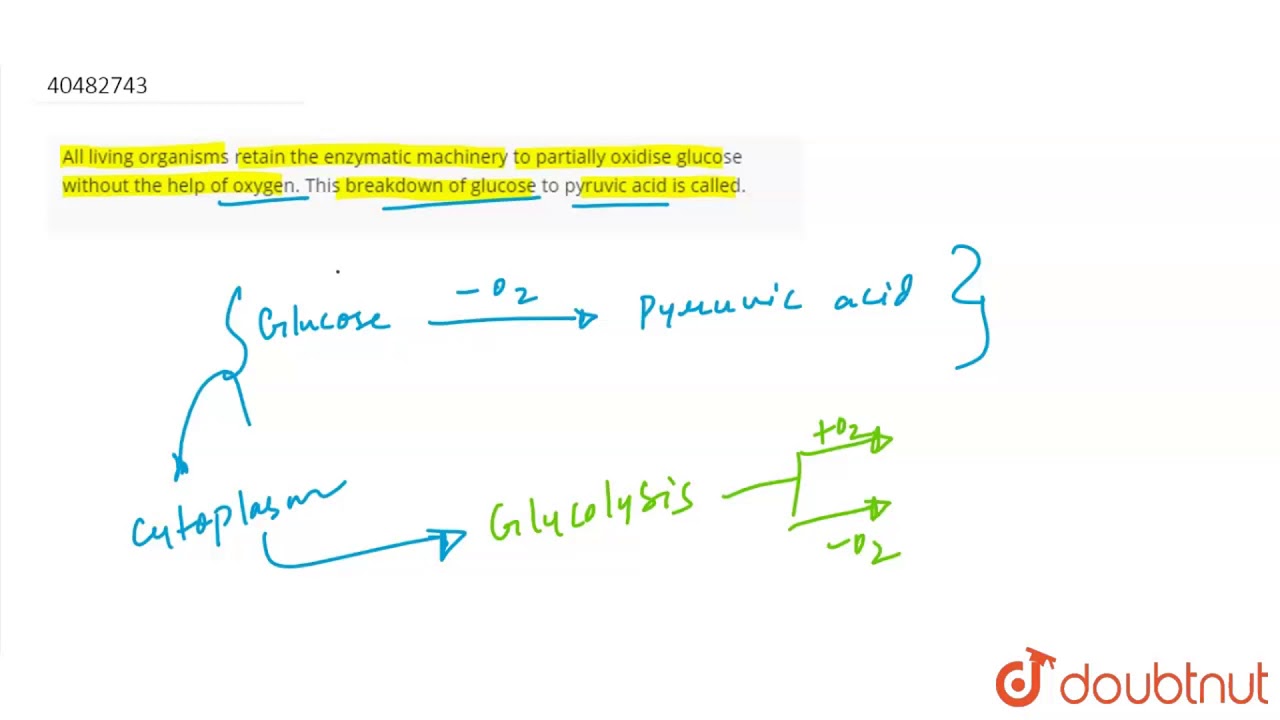 40482743
All living organisms retain the enzymatic machinery to partially oxidise glucose
without the help of oxygen. This breakdown of glucose to pyruvic acid is called.
Glucose -O2 Pyruvic acid
+O2
Cytoplasm Glycolysis
-O2
doubtnut